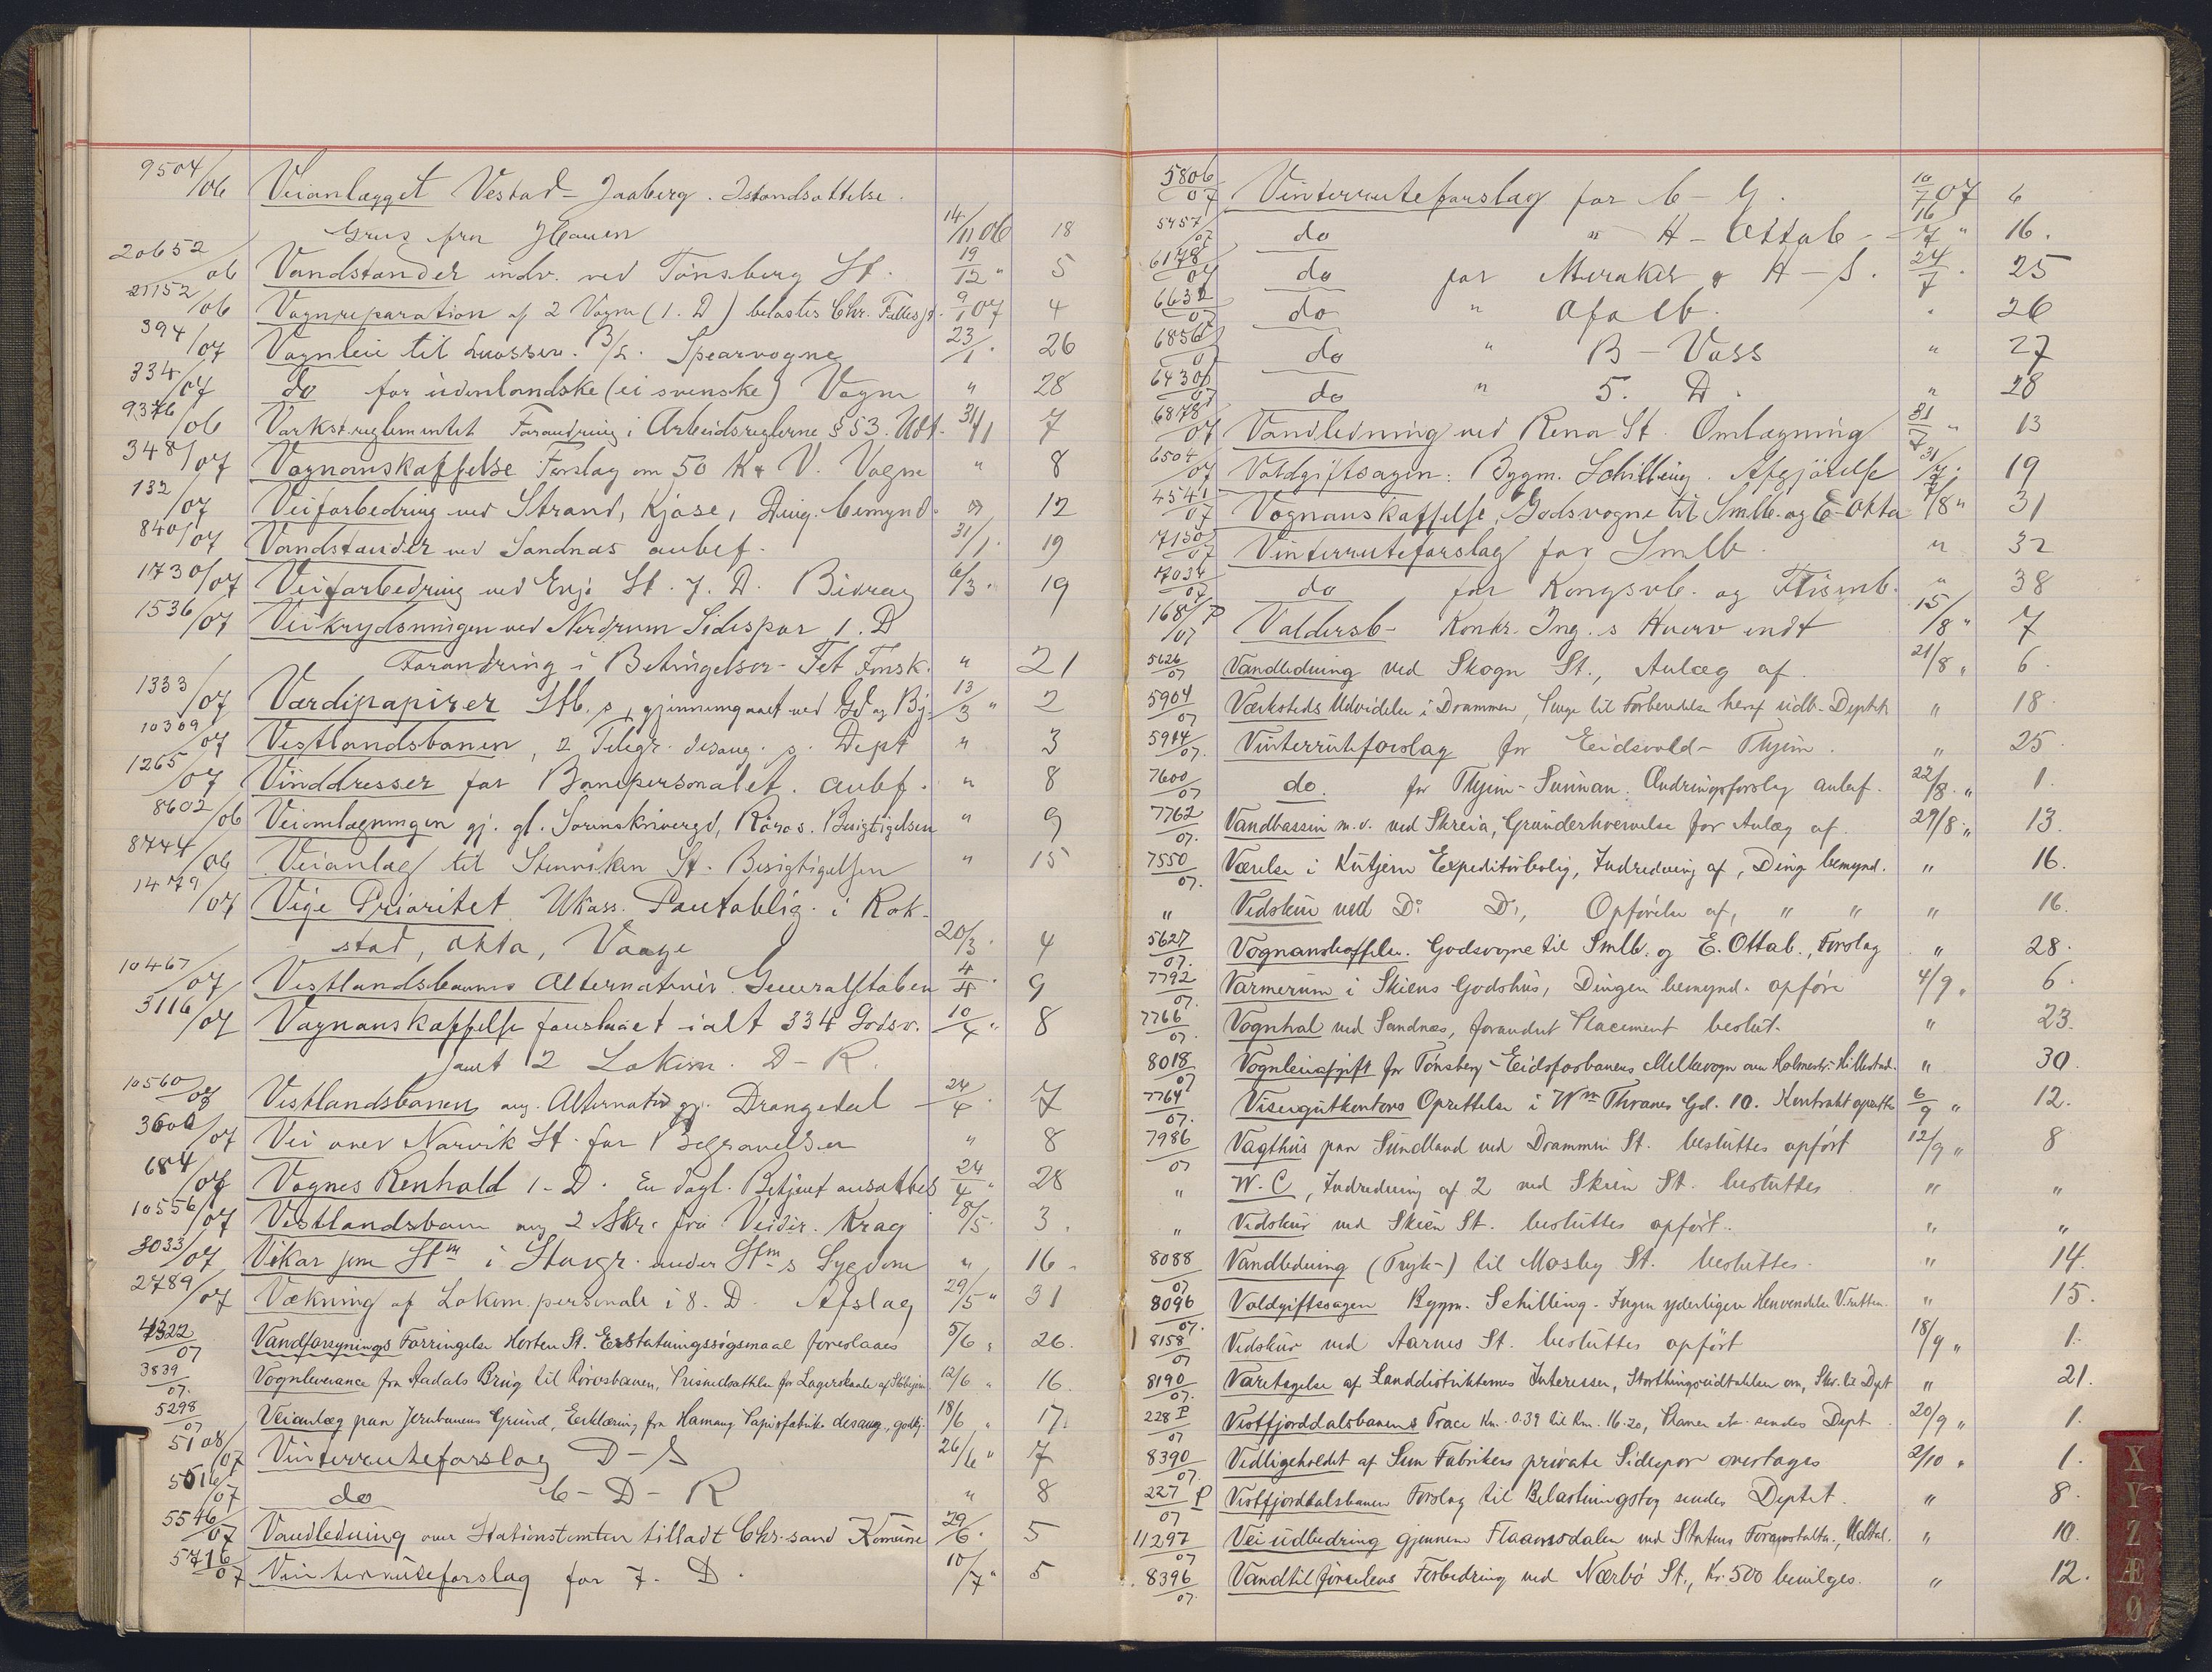 9504/06 Veianlægget Vestad - Jaaberg. Istandsættelse.
Grus fra Hauen 14/11 06 18
20652/06 Vandstander indv. ved Tønsberg St. 19/12 " 5
21152/06 Vognreparation af 2 Vogne (1. D) belastes Chr. Fælles 9/1 07 4
394/07 Vognleie til B/L. Spærvogne 23/1 " 26
334/07 do for udenlandske (ei svenske) Vogne " 28
9376/06 Værkst.reglementet Forandring i Arbeidsreglerne § 53. Udt. 31/1 7
348/07 Vognanskaffelse Forslag om 50 K & V. Vogne " 8
132/07 Veiforbedring ved Strand, Kjøse, Ding. bemynd. " 12
840/07 Vandstander ved Sandnæs anbef. 31/1. 19
1730/07 Veiforbedring ved St. 7. D. Bidrag 6/3. 19
1536/07 Veikrydsningen ved Nerdrum Sidespor 1. D
Forandring i Betingelser - Fet Forsk. " 21
1333/07 Værdipapirer Stb. s, gjennemgaaet ved 13/3 " 2
10309/07 Vestlandsbanen, 2 Telegr. desang. s. Dept " 3
1265/07 Vinddresser for Banepersonalet. anbef. " 8
8602/06 Veiomlægningen gj. gl. Sorenskrivergd, Röros. Besigtigelsen " 9
8744/06 Veianlæg til Stenviken St. Besigtigelsen " 15
1479/07 Vige Prioritet Ukass. Pantoblig. i Rok-
stad, Okta, Vaage 20/3. 4
10467/07 Vestlandsbanens Alternativer Generalstaben 4/4. 9
3116/07 Vognanskaffelse foreslaaet ialt 334 Godsv. 10/4. " 8
samt 2 Lokom. D-R.
10560/07 Vestlandsbanen ang. Alternativ gj. Drangedal 24/4. 7
3606/07 Vei over Narvik St. for Begravelser " 8
684/07 Vognes Renhold 1. D. En dagl. Betjent ansættes 24/4 " 28
10556/07 Vestlandsban ang 2 Skr. fra Veidir. Krag 8/5. 3.
3033/07 Vikar som Stm i Stavgr. under Stm s Sygdom " 16.
2789/07 Vækning af Lokom.personale i 8. D. Afslag 29/5 " 31
4322/07 Vandforsynings Forringelse Horten St. Erstatningssøgsmaal foreslaaes 5/6 " 26.
3839/07. Vognleverance fra Aadals Brug til Rörosbanen, Prisnedsættelse for 12/6 " 16.
5298/07 Veianlæg paa Jernbanens Grund, Erklæring fra Hamang Papirfabrik desang., godkj. 18/6 " 17.
5108/07 Vinterruteforslag D-S 26/6 " 7
5016/07 do C-D-R " 8
5546/07 Vandledning over Stationstomten tilladt Chr.sand Komune 29/6. 5
5716/07 Vinterruteforslag for 7. D. 10/7 " 5
5806/07 Vinterruteforslag for C-G. 10/7 07 6
5457/07 do " H - Ottab - 16/7 " 16.
6178/07 do for Meraker & H-S. 24/7. 25
6632/07 do " Ofotb. " 26
6856/07 do " B - Voss " 27
6430/07 do " 5. D. " 28
6878/07 Vandledning ved Rena St. Omlægning 31/7 " 13
6504/07 Voldgiftsagen: Bygm. Schilling. Afgjörelse 31/7. 19
4541/07 Vognanskaffelse, Godsvogne til Smlb. og E-Okta 7/8 " 31
7130/07 Vinterruteforslag for Smlb. " 32
7034/07 do for Kongsvb. og Flismb. " 38
168/07 P Valdersb- Konkr. Ing. s Hverv endt 15/8 " 7
5626/07 Vandledning ved Skogn St., Anlæg af. 21/8 " 6.
5904/07 Værksteds Udvidelse i Drammen, til Forberedelse heraf udb. Deptet " 18.
5914/07. Vinterruteforslag for Eidsvold - Thjem. " 25.
7600/07 do. for Thjem - Sunnan. Ændringsforslag anbef. 22/8. " 1.
7762/07. Vandbassin m.v. ved Skreia, Grunderhvervelse for Anlæg af. 29/8 " 13.
7550/07. Værelse i Kutjern Expeditørbolig, Indredning af, Ding bemynd. " 16.
" Vedskur ved Do Do, Opførelse af, " " " 16.
5627/07. Vognanskaffelse. Godsvogne til Smlb. og E. Ottab., Forslag " 28.
7792/07. Varmerum i Skiens Godshus, Dingen bemynd. opføre 4/9 " 6.
7766/07. Vognhal ved Sandnæs, forandret Placement beslut. " 23.
8018/07 Vognleieafgift for Tønsberg - Eidsfosbanens Melkevogn over Holmestr. - Hillestad. " 30.
7764/07. Visergutkontors Oprettelse i Wm Thranes Gd. 10. Kontrakt oprettes 6/9 " 12.
7986/07 Vagthus paa Sundland ved Drammen St. besluttes opført 12/9 " 8
" W.C, Indredning af 2 ved Skien St. besluttes " "
" Vedskur ved Skien St. besluttes opført. " "
8088/07 Vandledning (Tryk-) til Mosby St. besluttes. " 14.
8096/07. Voldgiftssagen Bygm. Schilling. Ingen yderligere Henvendelse V.retten. " 15.
8158/07 Vedskur ved Aarnes St. besluttes opført 18/9 " 1.
8190/07. Varetagelse af Landdistrikternes Interesser, Storthingsudtalelse om, Skr. til Dept " 21.
228 P/07 Vestfjorddalsbanens Trace Km. 0.39 til Km. 16.20, Planer etc. sendes Dept. 20/9 " 1.
8390/07. Vedligeholdet af Sem Fabrikers private Sidespor overtages 2/10 " 1.
227/07 P Vestfjorddalsbanen Forslag til Belastningstog sendes Deptet. " 8.
11297/07 Veiudbedring gjennem Flaamsdalen ved Statens Foranstaltn., Udtal. " 10.
8396/07. Vandtilførselens Forbedring ved Nærbø St., Kr. 500 bevilges. " 12.
X
Y
Z
Æ
Ø